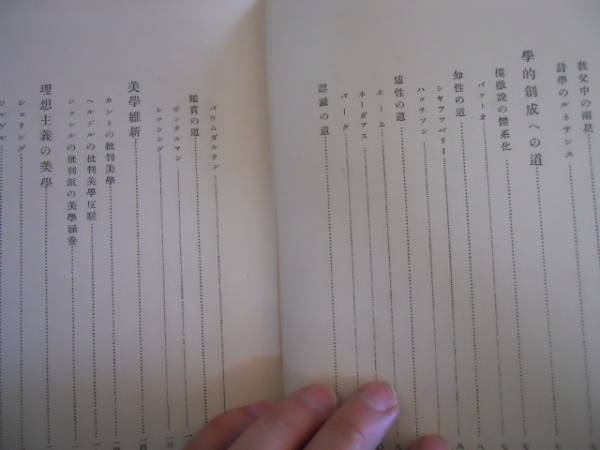 教父中の兩星
詩學のルネサンス
學的創成への道
模倣說の體系化
バットオ
知性の道
シヤフツベリー
ハツチソン
感性の道
ホーム
ホーガアス
バーク
認識の道
バウムガルテン
鑑賞の道
ヴィンケルマン
レッシング
美學維新
カントの批判美學
ヘルデルの批判美學反駁
シルレルの批判派の美學涵養
理想主義の美學
シェリング